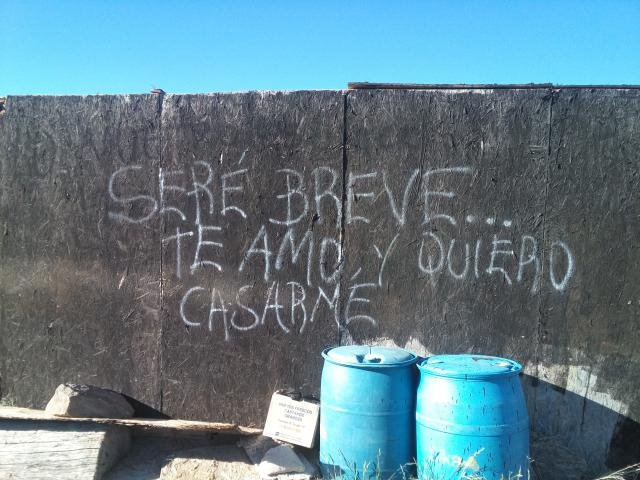 SERÉ BREVE...
TE AMO, Y QUIERO
CASARME